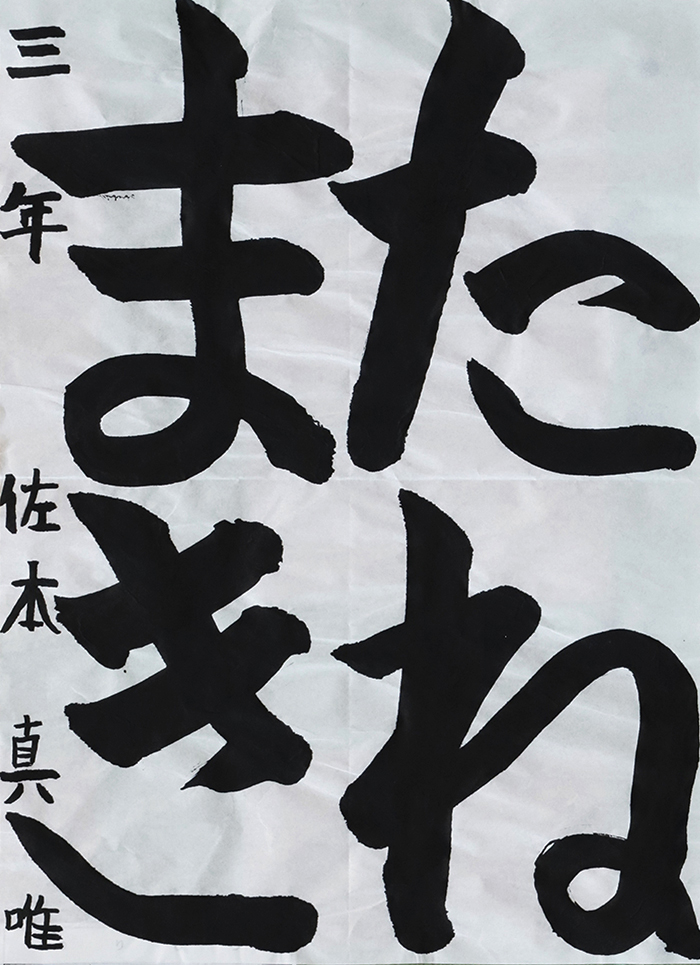 たね
まき
三年 佐本真唯